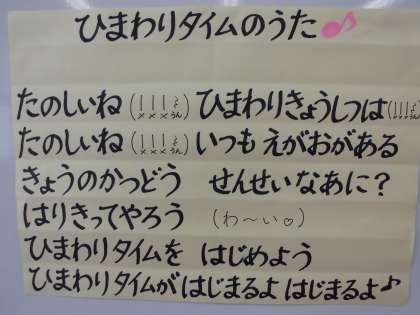 ひまわりタイムのうた♪
たのしいね(!!!と×××うん)ひまわりきょうしつは(!!!と うん)
たのしいね(!!!と×××うん)いつも えがおがある
きょうのかつどう せんせいなあに?
はりきってやろう (わ～い♡)
ひまわりタイムを はじめよう
ひまわりタイムが はじまるよ はじまるよ♪